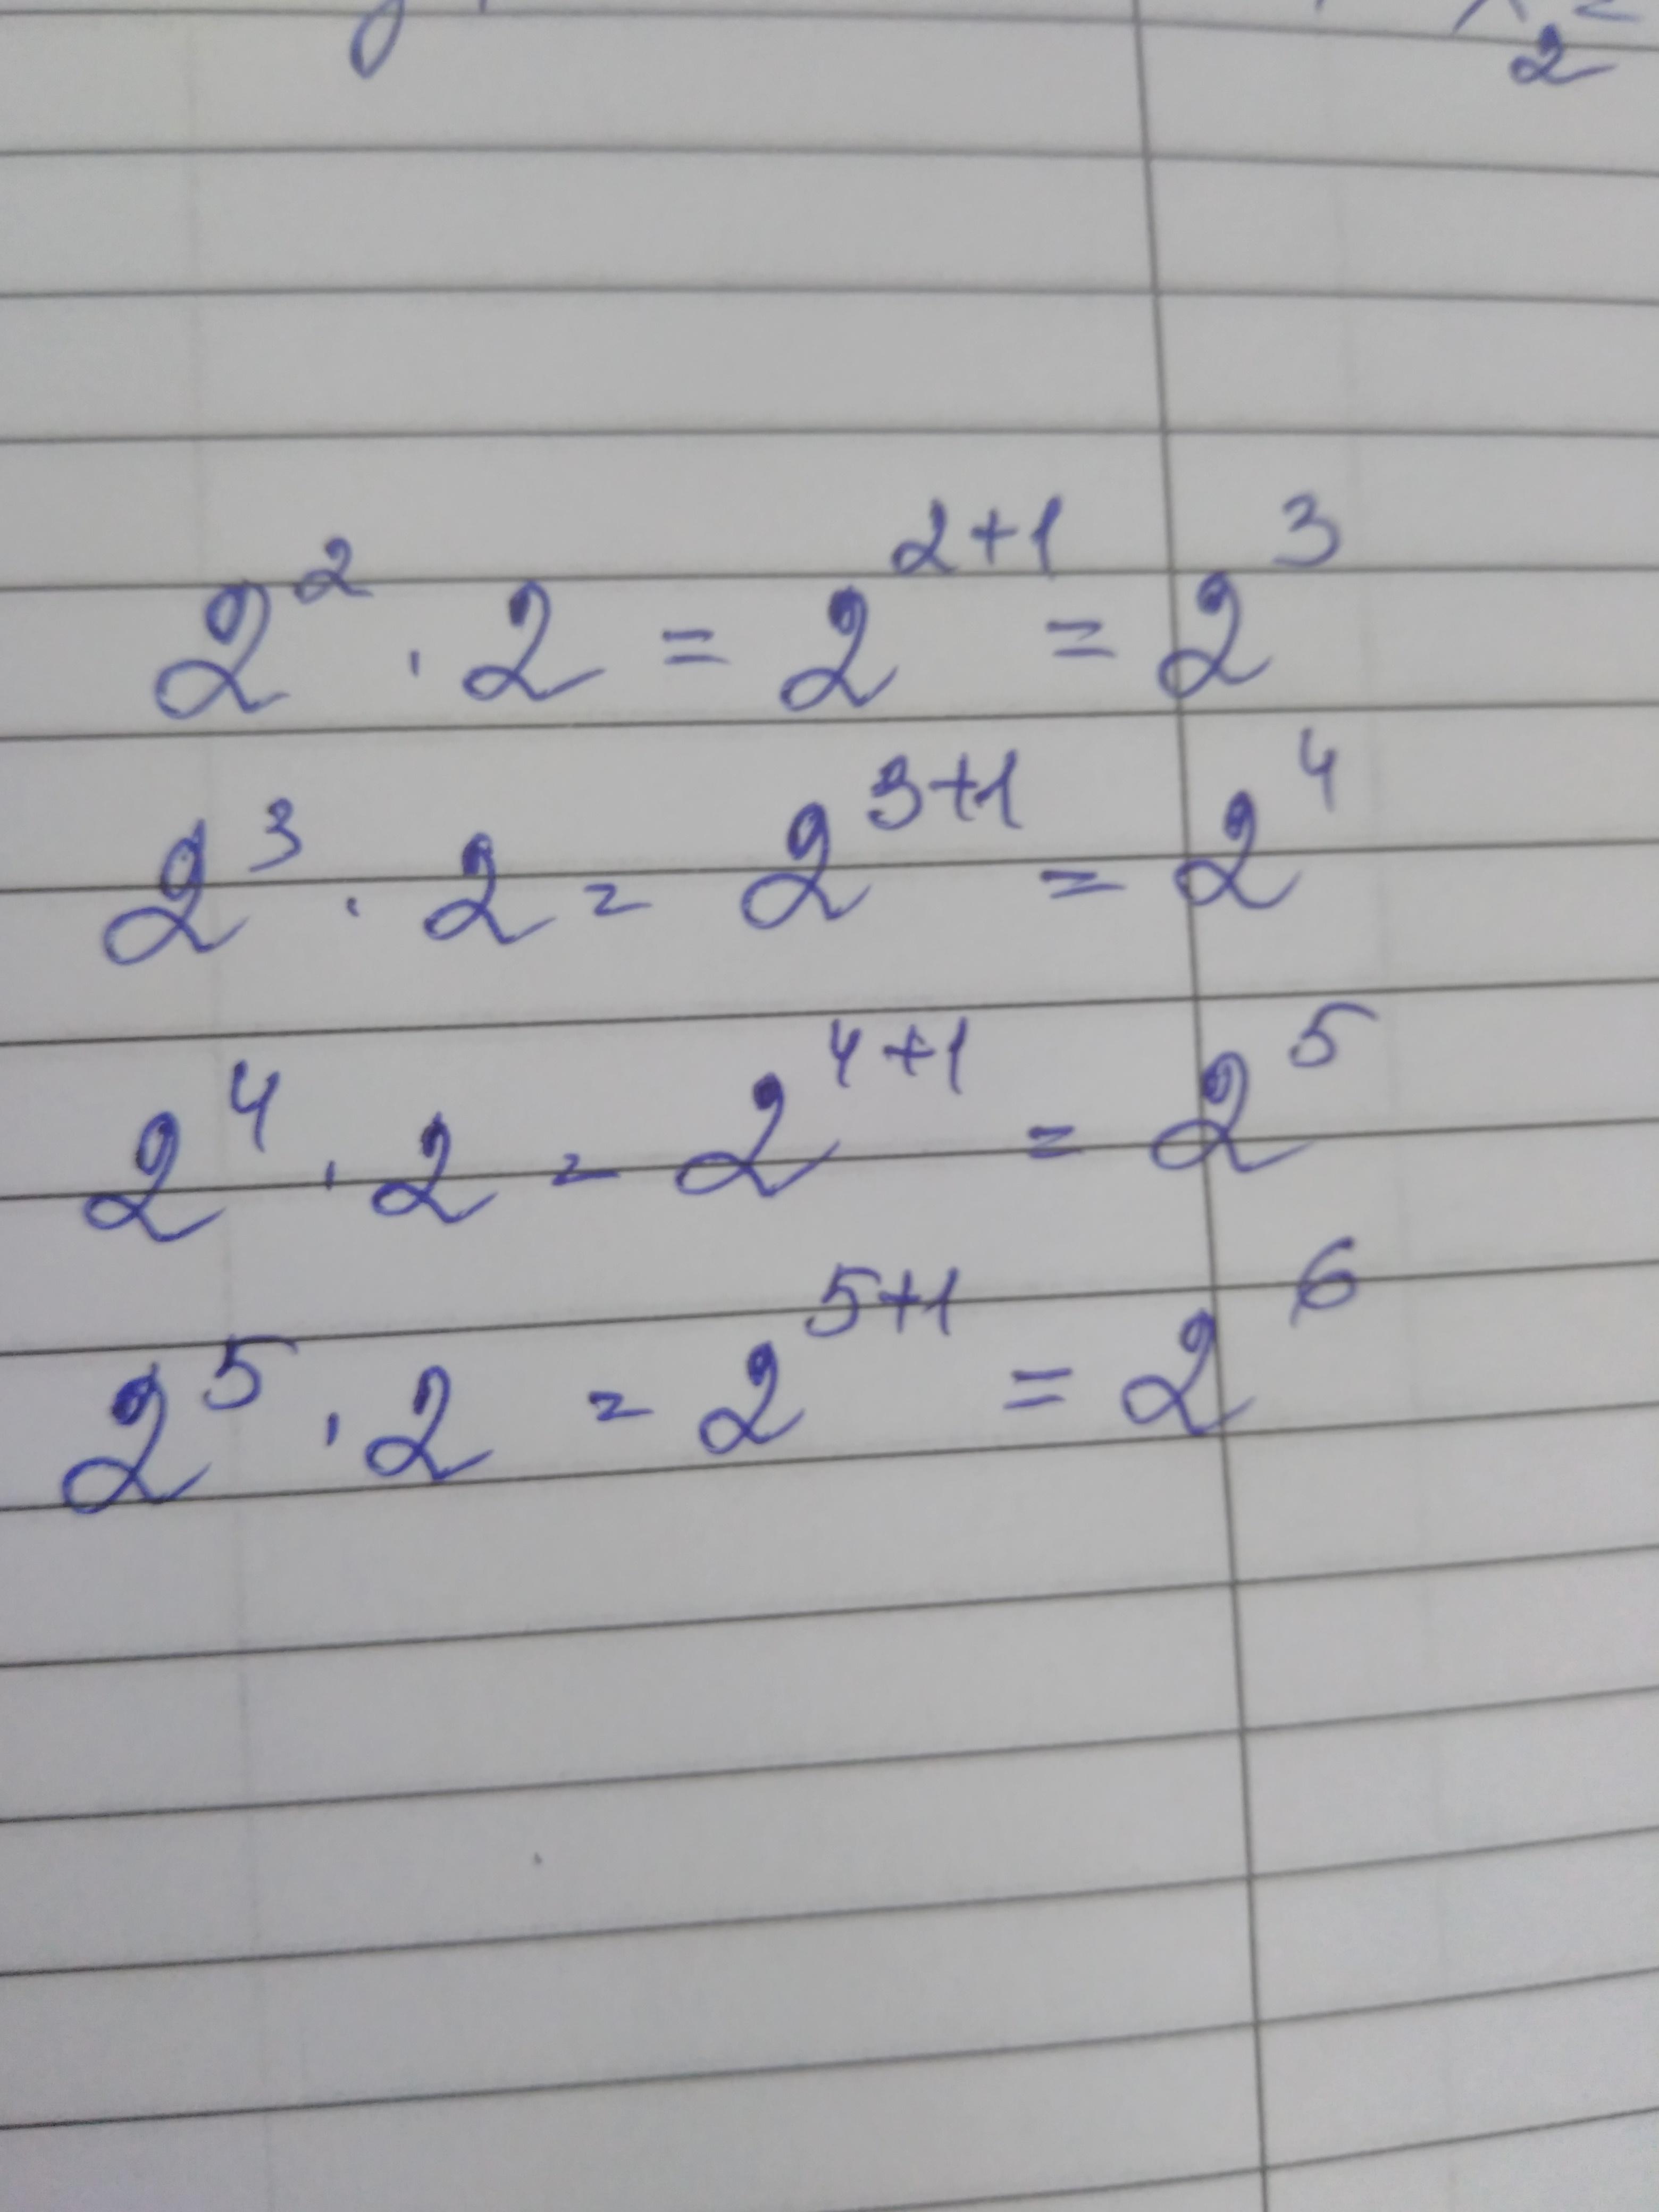 2² · 2 = 2²⁺¹ = 2³
2³ · 2 = 2³⁺¹ = 2⁴
2⁴ · 2 = 2⁴⁺¹ = 2⁵
2⁵ · 2 = 2⁵⁺¹ = 2⁶